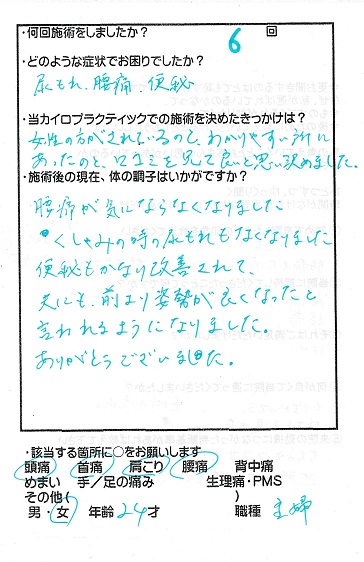 ・何回施術をしましたか? 6 回
・どのような症状でお困りでしたか?
尿もれ、腰痛、便秘
・当カイロプラクティックでの施術を決めたきっかけは?
女性の方がされているので、わかりやすい所に
あったのと、口コミを見て良いと思い決めました。
・施術後の現在、体の調子はいかがですか?
腰痛が気にならなくなりました
くしゃみの時の尿もれもなくなりました
便秘もかなり改善されて、
夫にも、前より姿勢が良くなったと
言われるようになりました。
ありがとうございました。
・該当する箇所に○をお願いします
頭痛 首痛 肩こり 腰痛 背中痛
めまい 手/足の痛み 生理痛・PMS
その他( )
男・女 年齢 24才 職種 主婦